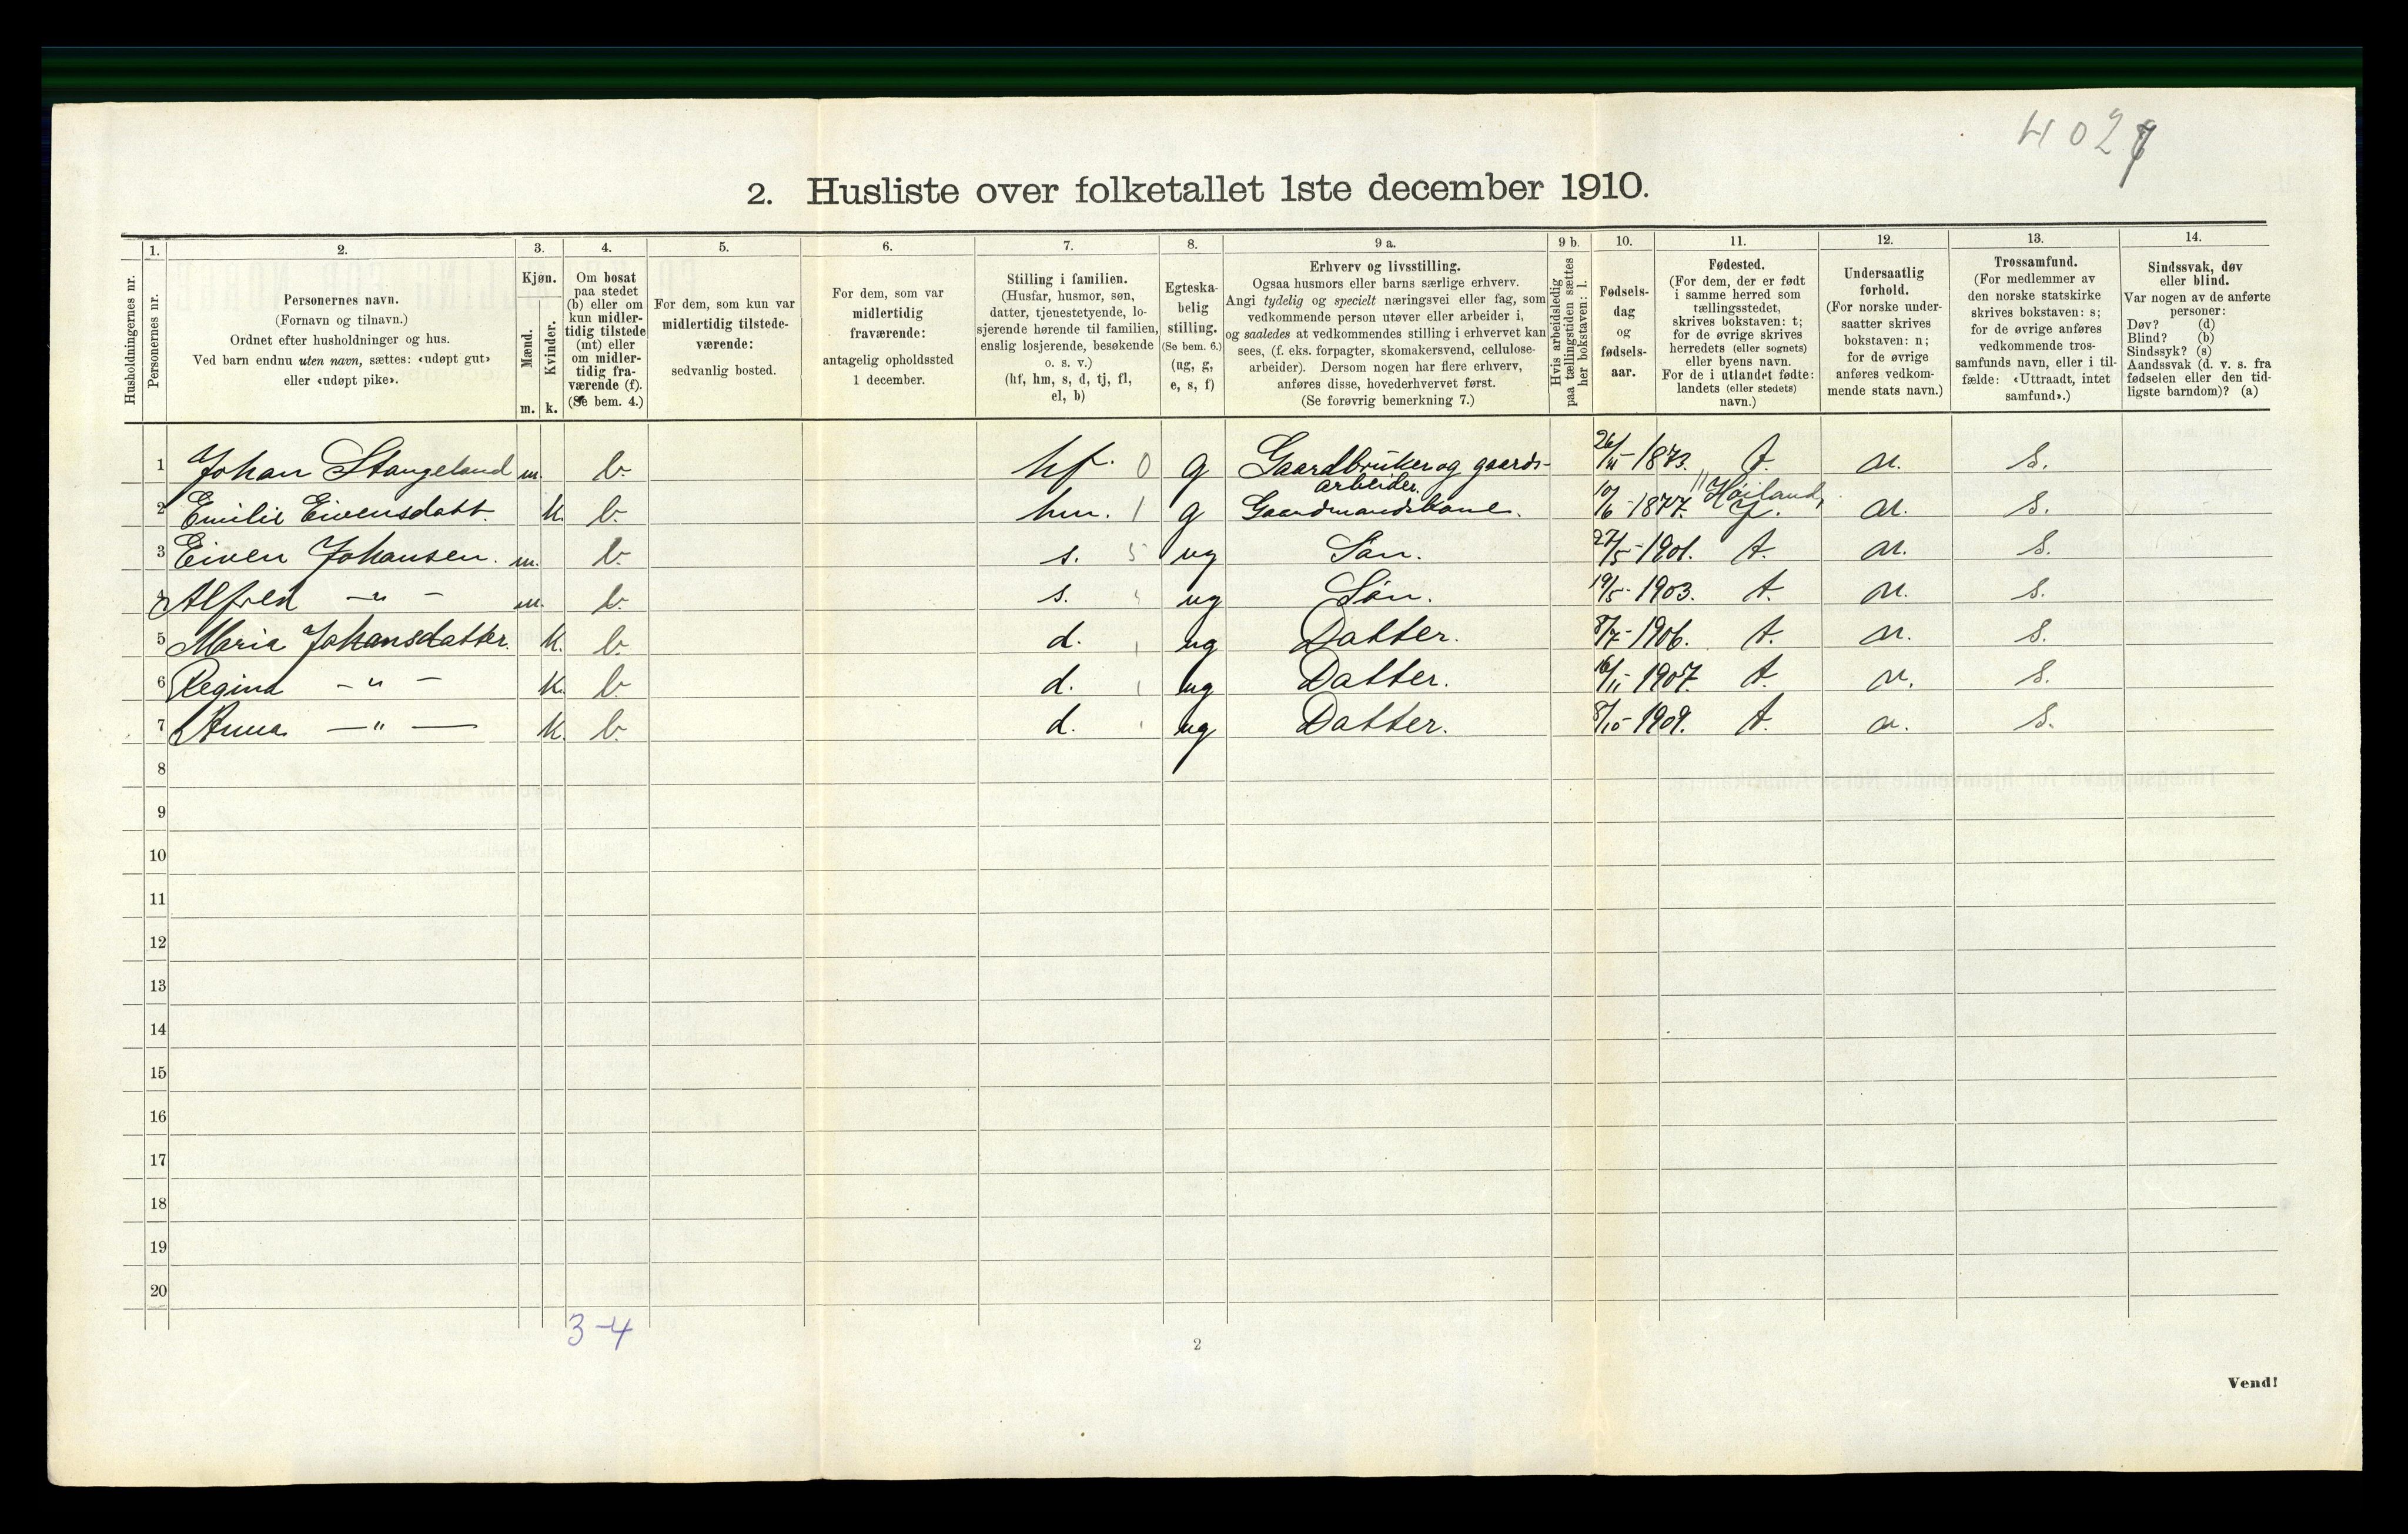 402
2. Husliste over folketallet 1ste december 1910.
1. 2. 3. 4. 5. 6. 7. 8. 9 a. 9 b. 10. 11. 12. 13. 14.
Husholdningernes nr.
Personernes nr.
Personernes navn.
(Fornavn og tilnavn.)
Ordnet efter husholdninger og hus.
Ved barn endnu uten navn, sættes: «udøpt gut»
eller «udøpt pike».
Kjøn.
Mænd.
Kvinder.
m. k.
Om bosat
paa stedet
(b) eller om
kun midler-
tidig tilstede
(mt) eller
om midler-
tidig fra-
værende (f).
(Se bem. 4.)
For dem, som kun var
midlertidig tilstede-
værende:
sedvanlig bosted.
For dem, som var
midlertidig
fraværende:
antagelig opholdssted
1 december.
Stilling i familien.
(Husfar, husmor, søn,
datter, tjenestetyende, lo-
sjerende hørende til familien,
enslig losjerende, besøkende
o. s. v.)
(hf, hm, s, d, tj, fl,
el, b)
Egteska-
belig
stilling.
(Se bem. 6.)
(ug, g,
e, s, f)
Erhverv og livsstilling.
Ogsaa husmors eller barns særlige erhverv.
Angi tydelig og specielt næringsvei eller fag, som
vedkommende person utøver eller arbeider i,
og saaledes at vedkommendes stilling i erhvervet kan
sees, (f. eks. forpagter, skomakersvend, cellulose-
arbeider). Dersom nogen har flere erhverv,
anføres disse, hovederhvervet først.
(Se forøvrig bemerkning 7.)
Hvis arbeidsledig
paa tællingstiden sættes
her bokstaven: l.
Fødsels-
dag
og
fødsels-
aar.
Fødested.
(For dem, der er født
i samme herred som
tællingsstedet,
skrives bokstaven: t;
for de øvrige skrives
herredets (eller sognets)
eller byens navn.
For de i utlandet fødte:
landets (eller stedets)
navn.)
Undersaatlig
forhold.
(For norske under-
saatter skrives
bokstaven: n;
for de øvrige
anføres vedkom-
mende stats navn.)
Trossamfund.
(For medlemmer av
den norske statskirke
skrives bokstaven: s;
for de øvrige anføres
vedkommende tros-
samfunds navn, eller i til-
fælde: «Uttraadt, intet
samfund».)
Sindssvak, døv
eller blind.
Var nogen av de anførte
personer:
Døv? (d)
Blind? (b)
Sindssyk? (s)
Aandssvak (d. v. s. fra
fødselen eller den tid-
ligste barndom)? (a)
1 Johan Stangeland m. b. hf. 0 g Gaardbruker og gaards- 1873. t. n. s.
arbeider.
2 Emilie Eivensdatt. k. b. hm. 1 g Gaardmandskone. 10/6-1877. Høiland, n. s.
3 Eiven Johansen. m. b. s. 5 ug Søn. 27/5-1901. t. n. s.
4 Alfred -"- m. b. s. ug Søn. 19/5-1903. t. n. s.
5 Maria Johansdatter. k. b. d. ug Datter. 8/7-1906. t. n. s.
6 Regina -"- k. b. d. ug Datter. 16/11 1907. t. n. s.
7 Anna -"- k. b. d. ug Datter. 8/10-1909. t. n. s.
8
9
10
11
12
13
14
15
16
17
18
19
20
3-4
2
Vend!